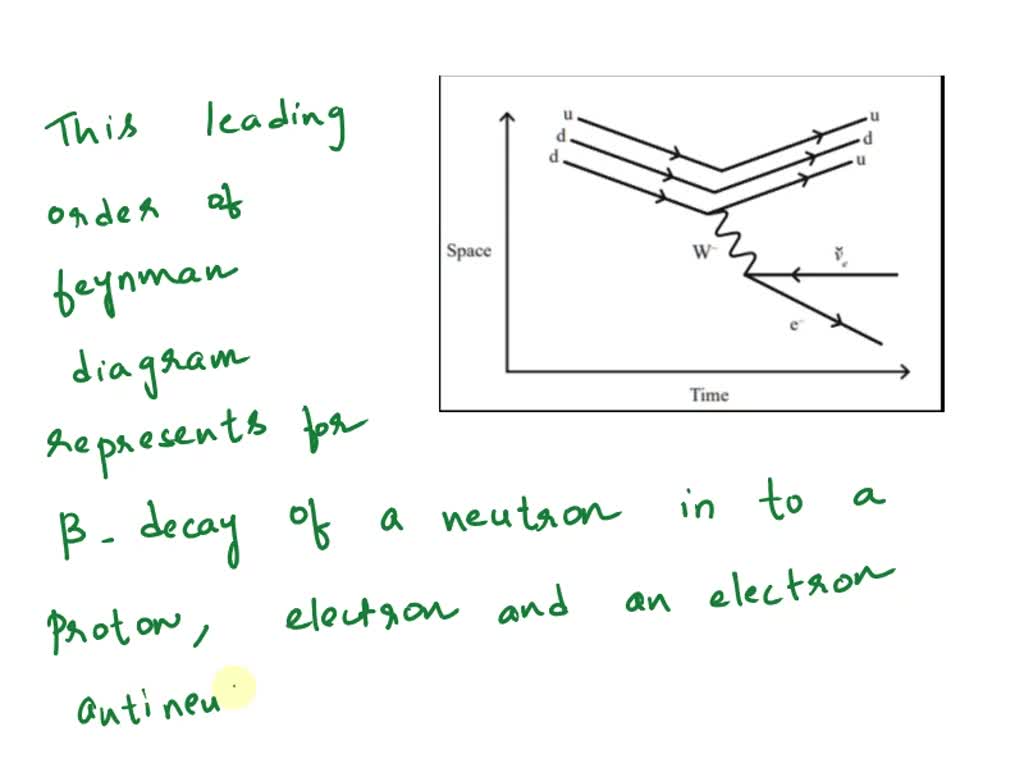 This leading
order of
feynman
diagram
represents for
β - decay of a neutron in to a
proton, electron and an electron
antineu
u
d
d
u
d
u
Space
W⁻
ν̌ₑ
e⁻
Time